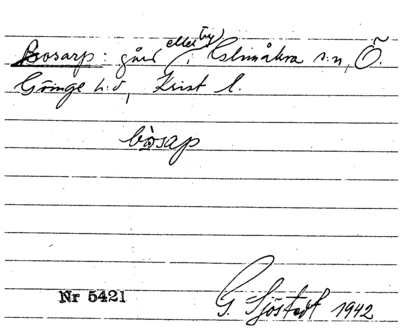 Bosarp: gård (eller by) i Glimåkra s:n, Ö.
Göinge h:d, Krist l.
bòsap
Nr 5421 G. Sjöstedt 1942